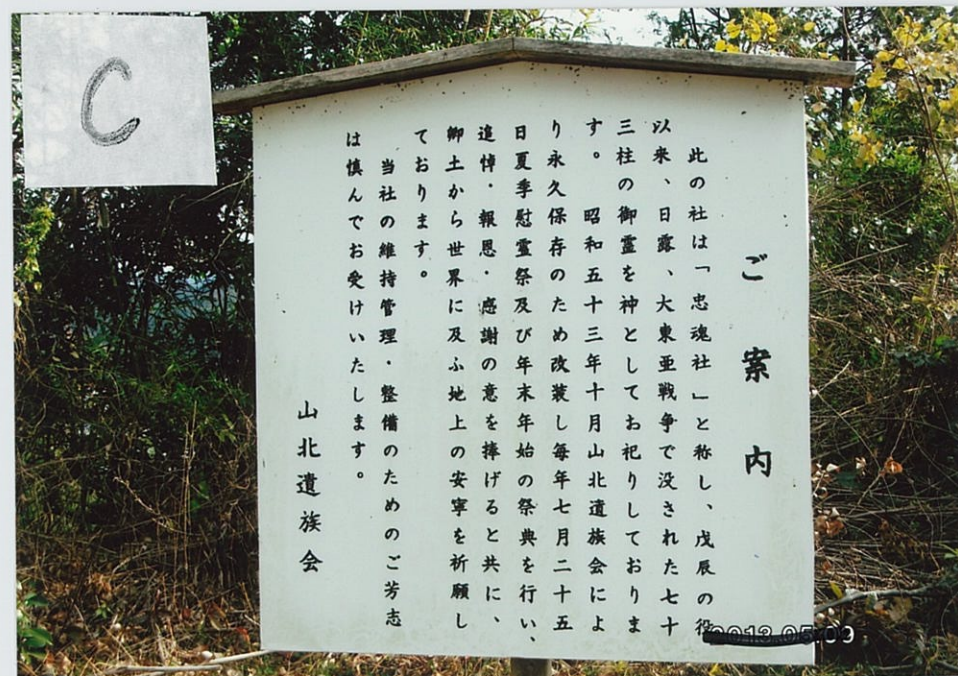 C
ご案内
此の社は「忠魂社」と称し、戊辰の役
以来、日露、大東亜戦争で没された七十
三柱の御霊を神としてお祀りしておりま
す。 昭和五十三年十月山北遺族会によ
り永久保存のため改装し毎年七月二十五
日夏季慰霊祭及び年末年始の祭典を行い、
追悼・報恩・感謝の意を捧げると共に、
郷土から世界に及ふ地上の安寧を祈願し
ております。
当社の維持管理・整備のためのご芳志
は慎んでお受けいたします。
山北遺族会
2013.05.09